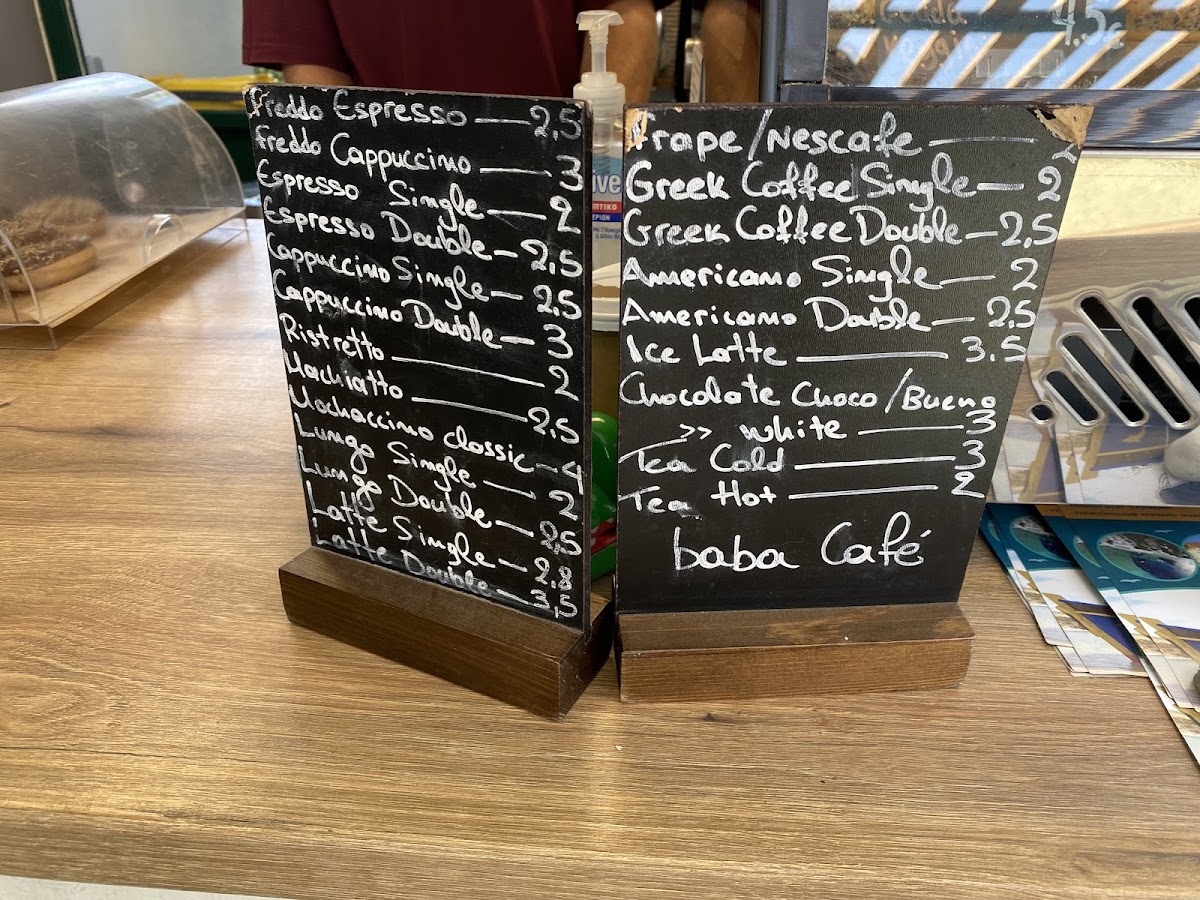 Freddo Espresso — 2,5
Freddo Cappuccino — 3
Espresso Single — 2
Espresso Double — 2,5
Cappuccino Single — 2,5
Cappuccino Double — 3
Ristretto — 2
Machiatto — 2,5
Mochaccino classic — 4
Lungo Single — 2
Lungo Double — 2,5
Latte Single — 2,8
Latte Double — 3,5
Frape/Nescafe —
Greek Coffee Single — 2
Greek Coffee Double — 2,5
Americano Single — 2
Americano Double — 2,5
Ice Latte — 3.5
Chocolate Choco/Bueno
>> white — 3
Tea Cold — 3
Tea Hot — 2
baba Café
4.5€